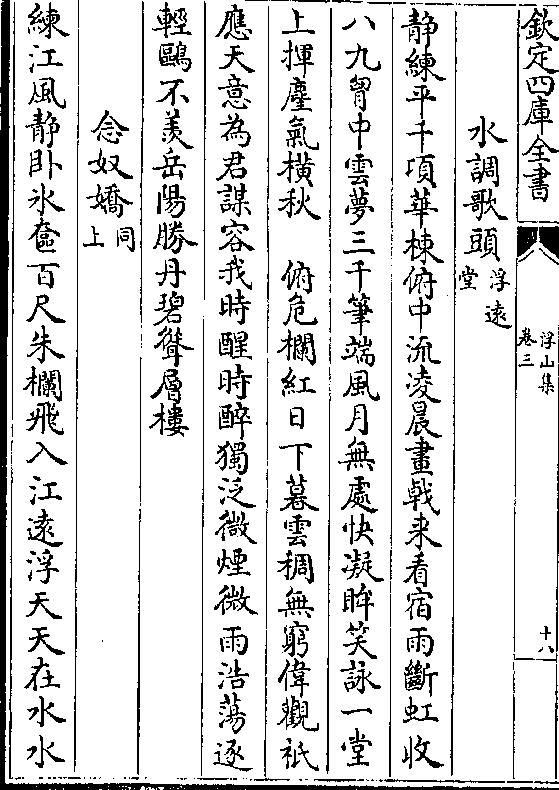 欽定四庫全書
浮山集
卷三
十八
水調歌頭浮遠堂
静練平千項華棟俯中流凌晨畫戟来看宿雨斷虹收
八九胷中雲夢三千筆端風月無處快凝眸笑詠一堂
上揮麈氣橫秋　俯危欄紅日下暮雲稠無窮偉觀祇
應天意為君謀容我時醒時醉獨泛微煙微雨浩蕩逐
輕鷗不羨岳陽勝丹碧聳層樓
念奴嬌同上
練江風静卧氷奩百尺朱欄飛入江遠浮天天在水水